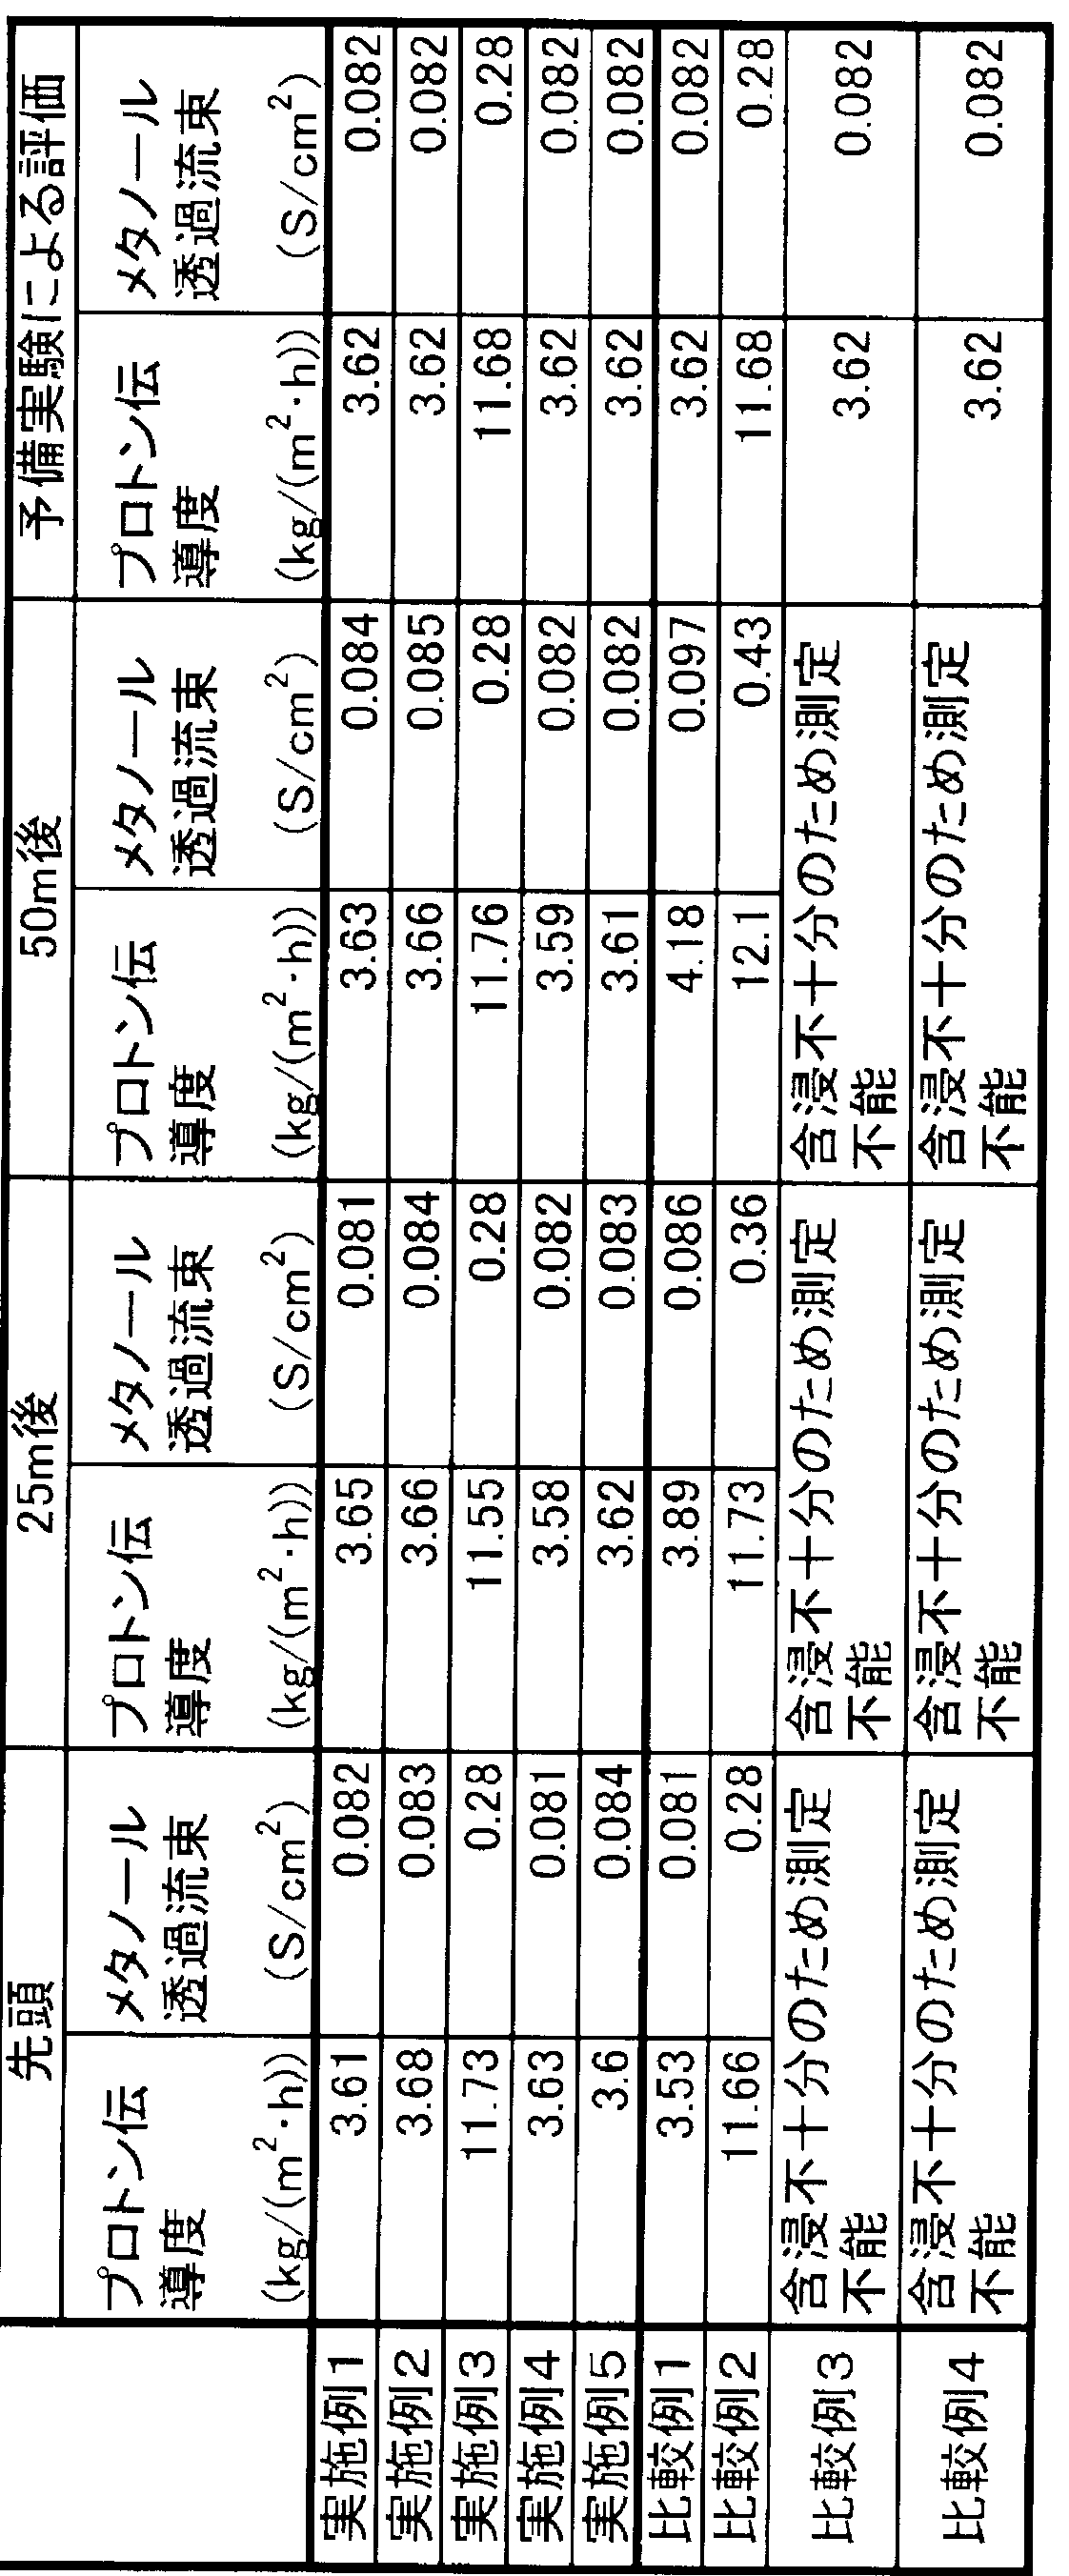 先頭 25m後 50m後 予備実験による評価
プロトン伝 メタノール プロトン伝 メタノール プロトン伝 メタノール プロトン伝 メタノール
導度 透過流束 導度 透過流束 導度 透過流束 導度 透過流束
(kg/(m²·h)) (S/cm²) (kg/(m²·h)) (S/cm²) (kg/(m²·h)) (S/cm²) (kg/(m²·h)) (S/cm²)
実施例1 3.61 0.082 3.65 0.081 3.63 0.084 3.62 0.082
実施例2 3.68 0.083 3.66 0.084 3.66 0.085 3.62 0.082
実施例3 11.73 0.28 11.55 0.28 11.76 0.28 11.68 0.28
実施例4 3.63 0.081 3.58 0.082 3.59 0.082 3.62 0.082
実施例5 3.6 0.084 3.62 0.083 3.61 0.082 3.62 0.082
比較例1 3.53 0.081 3.89 0.086 4.18 0.097 3.62 0.082
比較例2 11.66 0.28 11.73 0.36 12.1 0.43 11.68 0.28
比較例3 含浸不十分のため測定 含浸不十分のため測定 含浸不十分のため測定 3.62 0.082
不能 不能 不能
比較例4 含浸不十分のため測定 含浸不十分のため測定 含浸不十分のため測定 3.62 0.082
不能 不能 不能